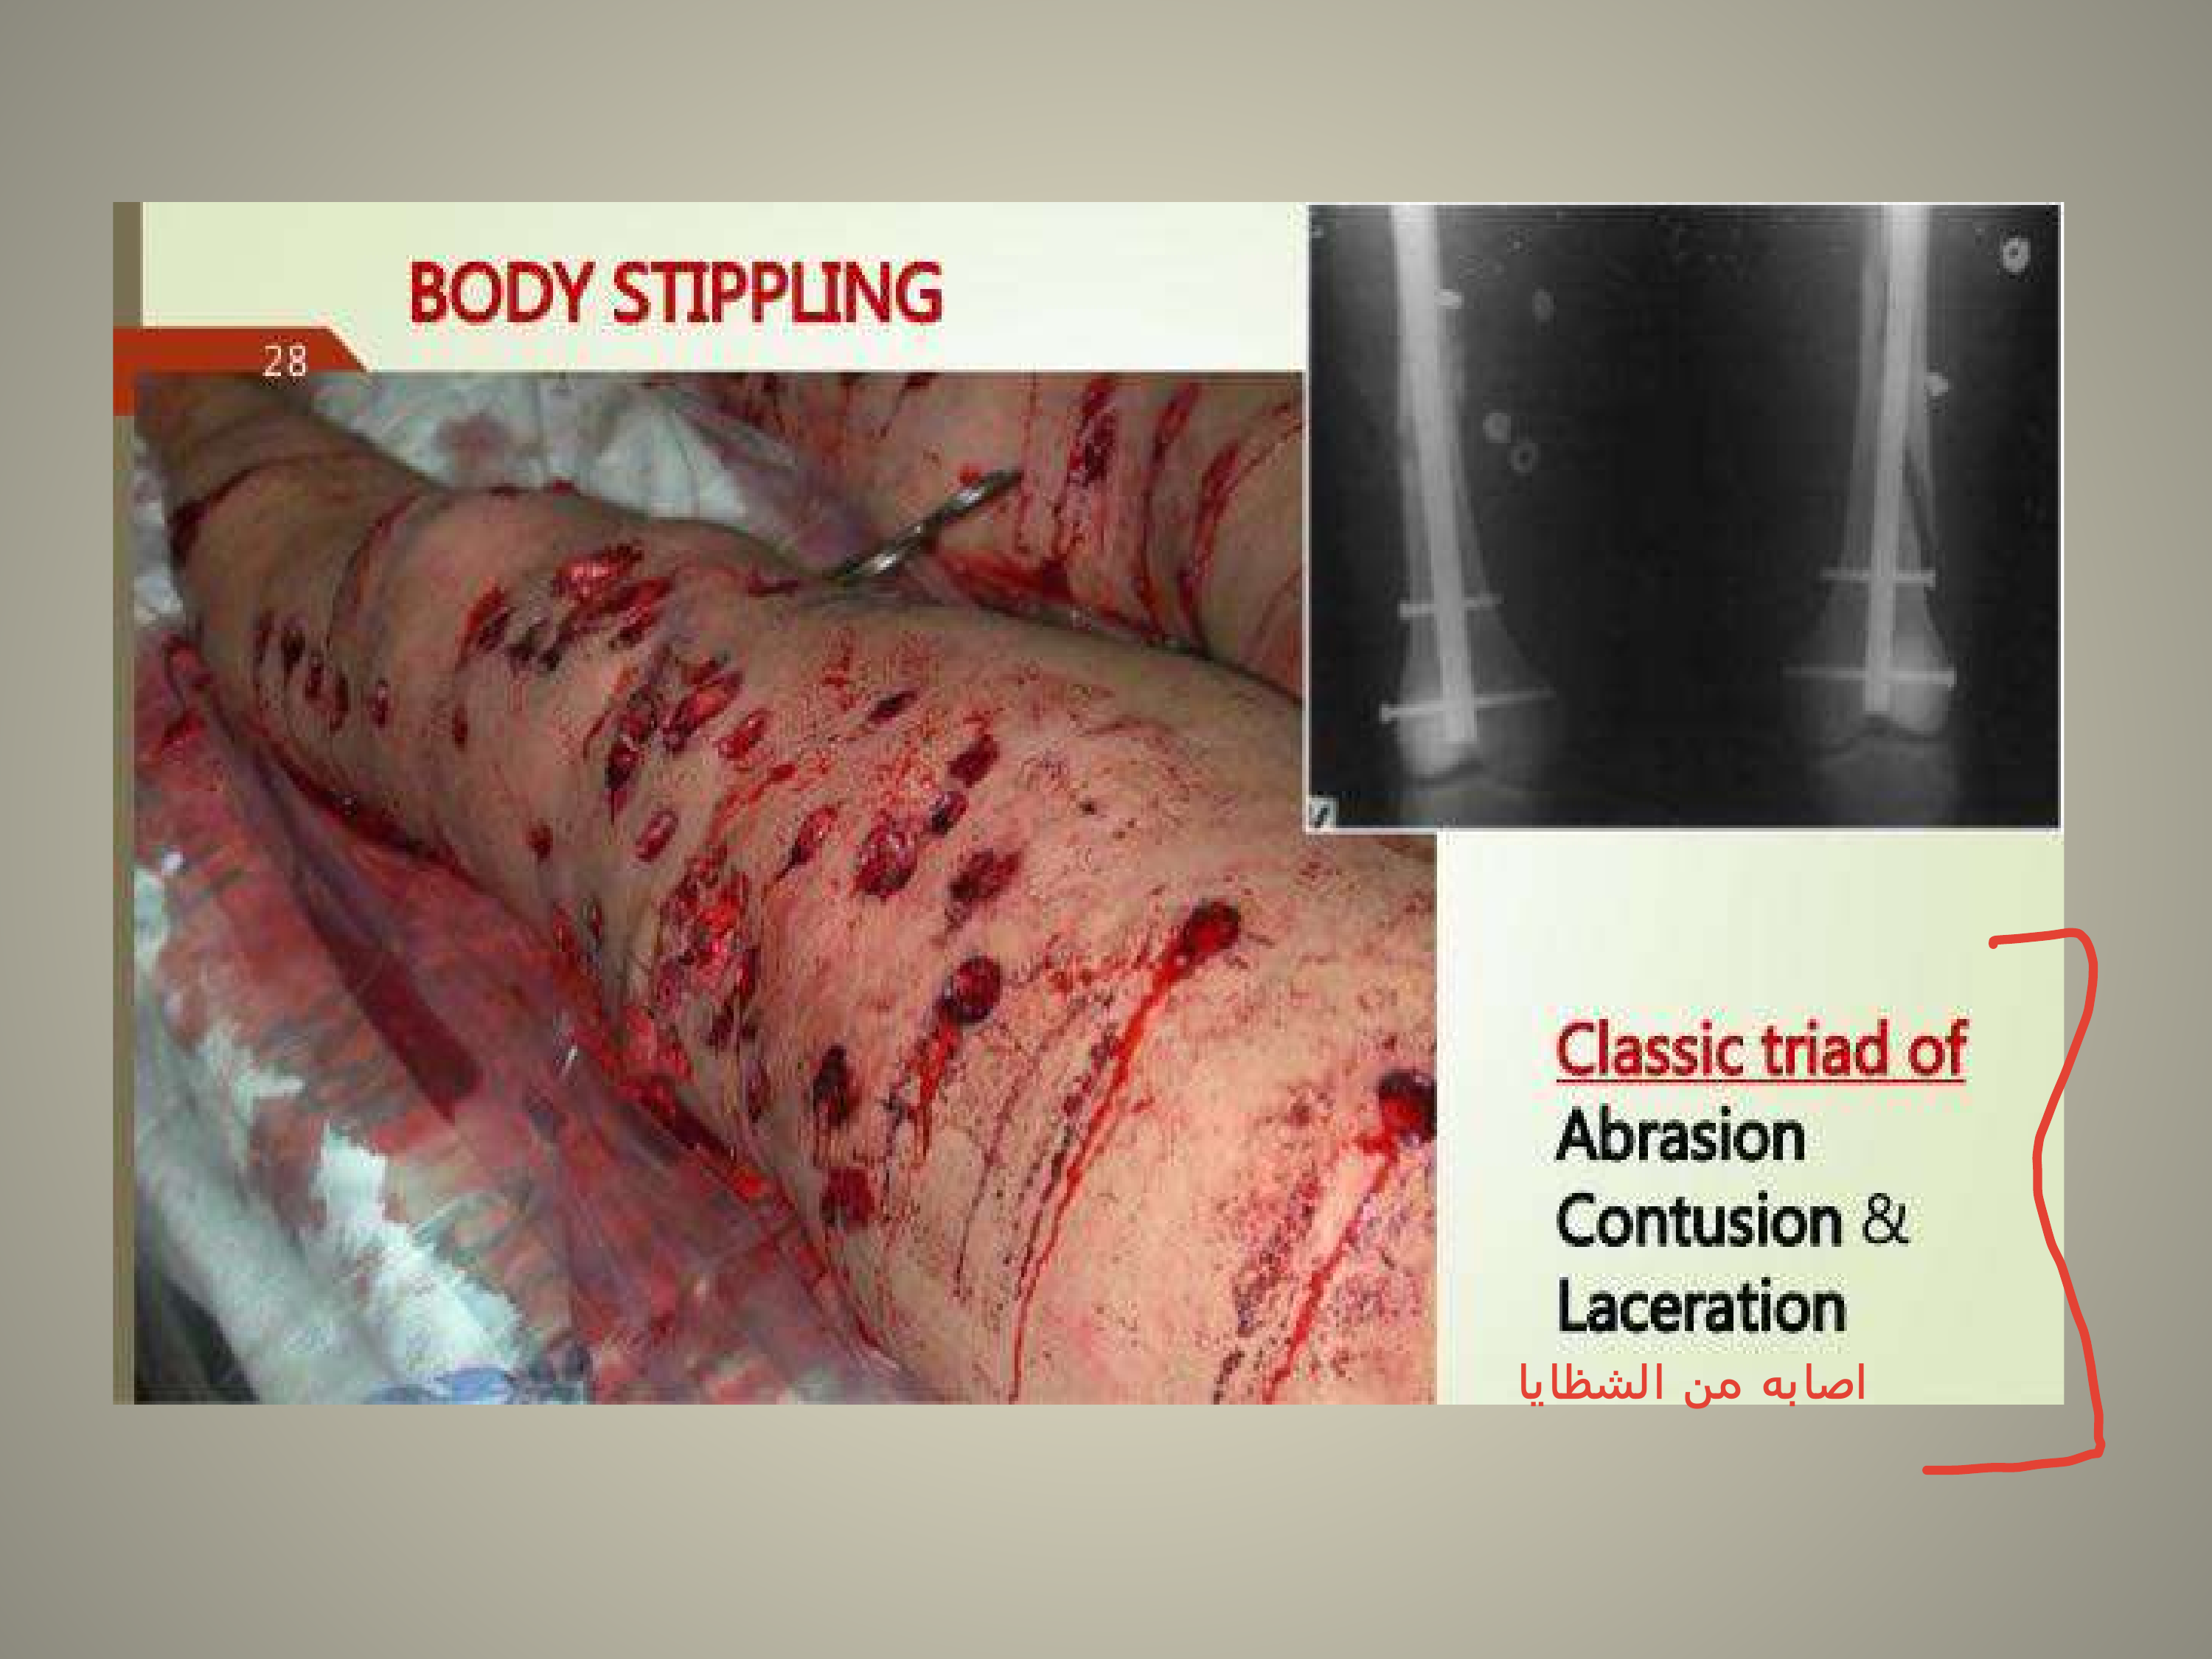 BODY STIPPLING
28
Classic triad of
Abrasion
Contusion &
Laceration
اصابه من الشظايا